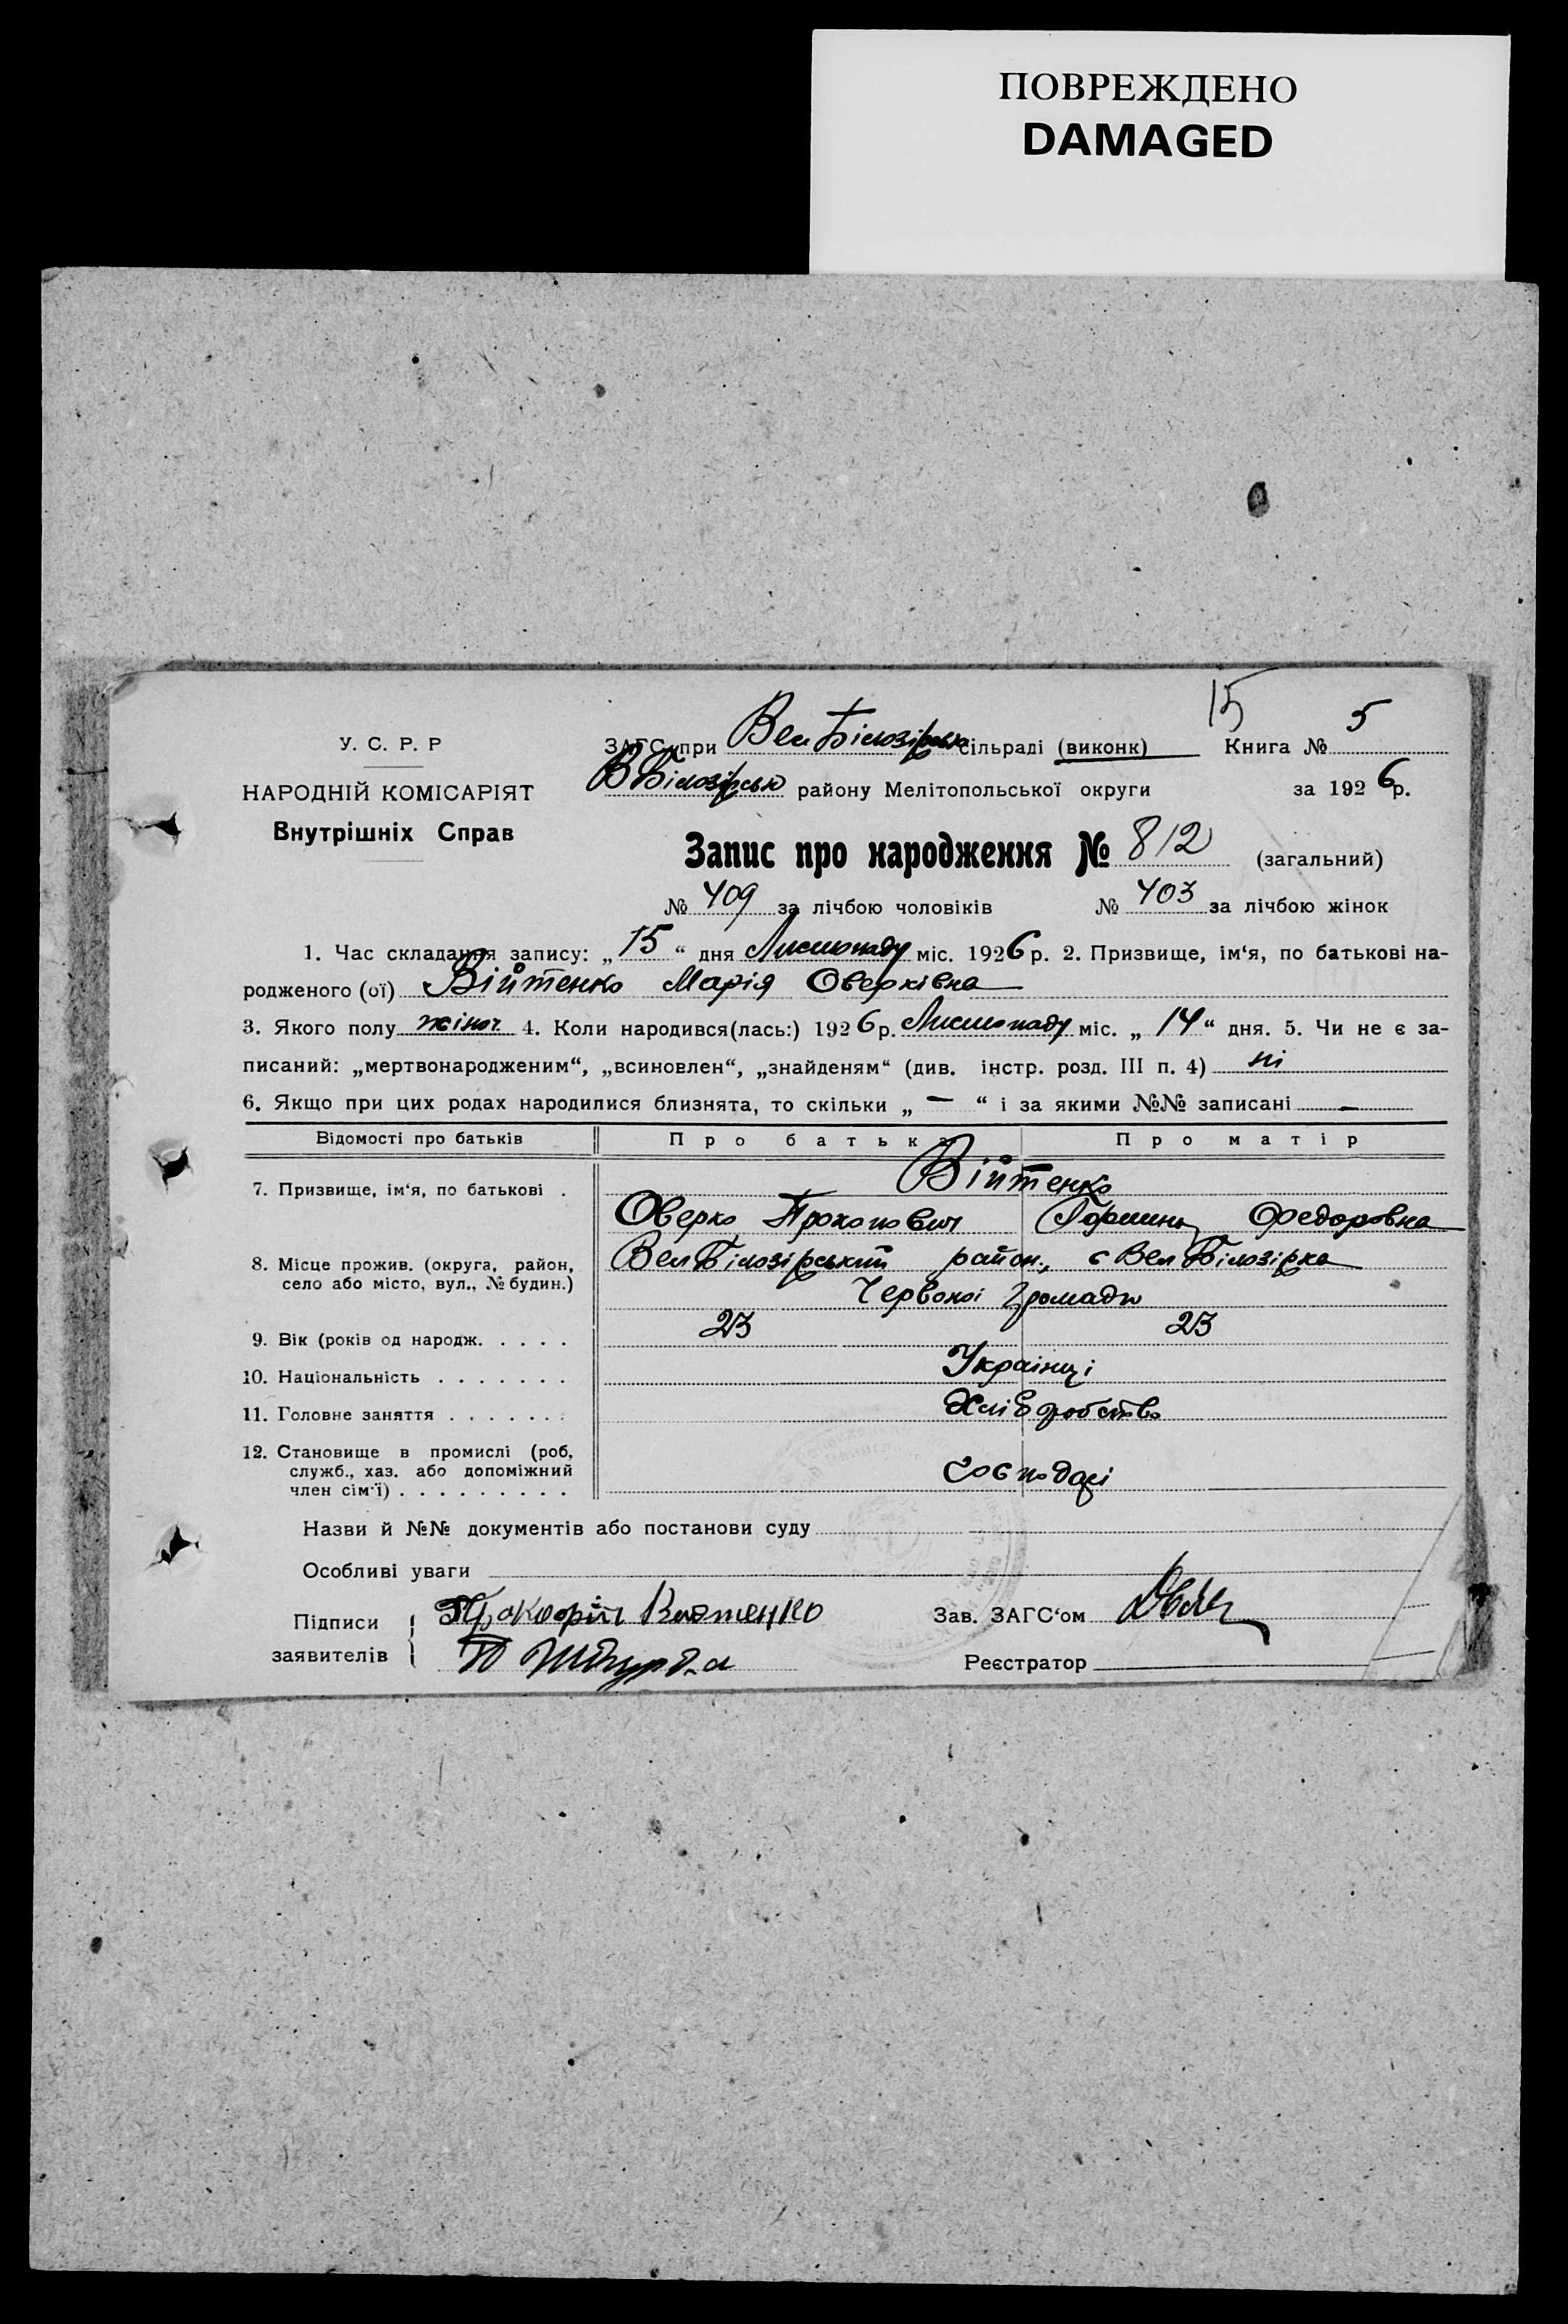 ПОВРЕЖДЕНО
DAMAGED
15
У. С. Р. Р
НАРОДНІЙ КОМІСАРІЯТ
Внутрішніх Справ
ЗАГС при Вел Білозірськ сільраді (виконк) Книга № 5
В Білозірськ району Мелітопольської округи за 1926 р.
Запис про народження № 812 (загальний)
№ 409 за лічбою чоловіків № 403 за лічбою жінок
1. Час складання запису: „15“ дня Листопаду міс. 1926 р. 2. Призвище, ім‘я, по батькові на-
родженого (ої) Війтенко Марія Оверківна
3. Якого полу жіноч 4. Коли народився(лась:) 1926 р. Листопаду міс. „14“ дня. 5. Чи не є за-
писаний: „мертвонародженим“, „всиновлен“, „знайденям“ (див. інстр. розд. III п. 4) ні
6. Якщо при цих родах народилися близнята, то скільки „—“ і за якими №№ записані —
Відомості про батьків Про батька Про матір
7. Призвище, ім‘я, по батькові . Війтенко
Оверко Прокопович Федоровна
8. Місце прожив. (округа, район,
село або місто, вул., № будин.)
Вел Білозірський район., с Вел Білозірка
Червоної Громади
9. Вік (років од народж. . . . . 23 23
10. Національність . . . . . . . Українці
11. Головне заняття . . . . . . . Хліборобство
12. Становище в промислі (роб,
служб., хаз. або допоміжний
член сім‘ї) . . . . . . . . . Господарі
Назви й №№ документів або постанови суду
Особливі уваги
Підписи
заявителів
Зав. ЗАГС‘ом
Реєстратор